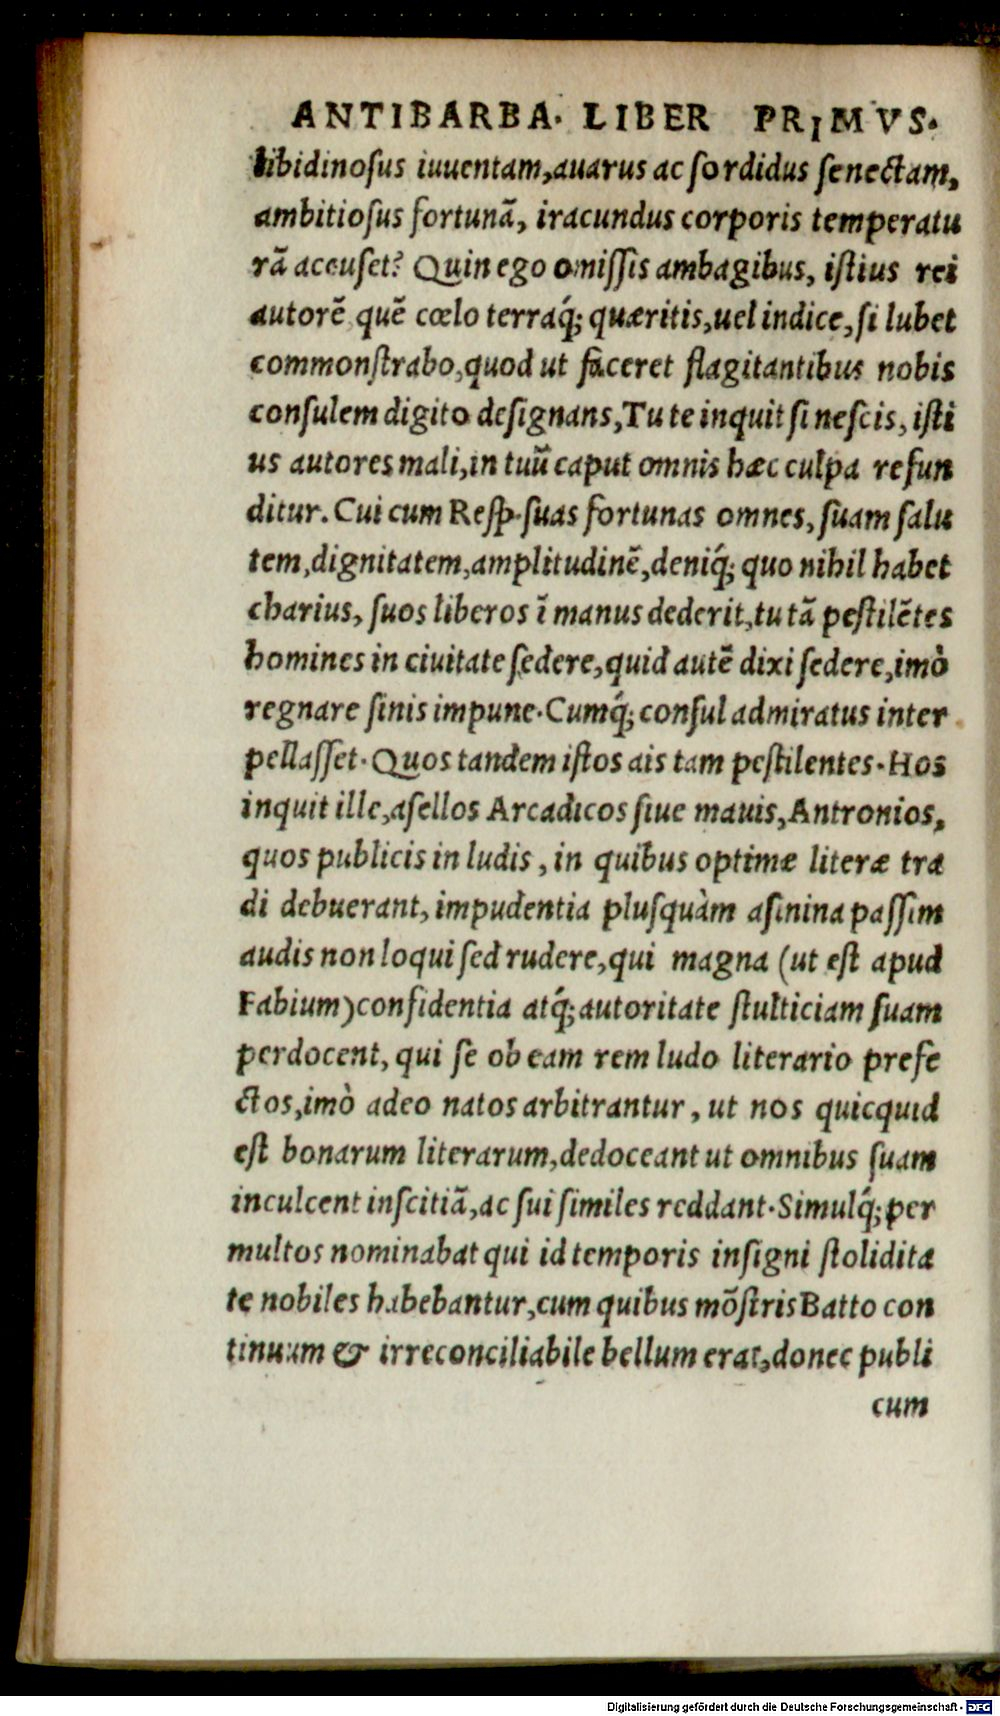 ANTIBARBA. LIBER PRIMVS.
libidinoſus iuuentam,auarus ac ſordidus ſenectam,
ambitioſus fortunã, iracundus corporis temperatu
rã accuſet? Quin ego omiſſis ambagibus, iſtius rei
autorẽ quẽ cœlo terraq́; quæritis,uel indice,ſi lubet
commonſtrabo,quod ut faceret flagitantibus nobis
conſulem digito deſignans,Tu te inquit ſi neſcis, iſti
us autores mali,in tuũ caput omnis hæc culpa refun
ditur. Cui cum Reſp. ſuas fortunas omnes, ſuam ſalu
tem,dignitatem,amplitudinẽ,deniq́; quo nihil habet
charius, ſuos liberos ĩ manus dederit,tu tã peſtilẽtes
homines in ciuitate ſedere,quid autẽ dixi ſedere,imò
regnare ſinis impune. Cumq́; conſul admiratus inter
pellaſſet. Quos tandem iſtos ais tam peſtilentes. Hos
inquit ille,aſellos Arcadicos ſiue mauis,Antronios,
quos publicis in ludis, in quibus optimæ literæ tra
di debuerant, impudentia pluſquàm aſinina paſſim
audis non loqui ſed rudere,qui magna (ut eſt apud
Fabium)confidentia atq́;autoritate ſtulticiam ſuam
perdocent, qui ſe ob eam rem ludo literario prefe
ctos,imò adeo natos arbitrantur, ut nos quicquid
eſt bonarum literarum,dedoceant ut omnibus ſuam
inculcent inſcitiã,ac ſui ſimiles reddant. Simulq́; per
multos nominabat qui id temporis inſigni ſtolidita
te nobiles habebantur,cum quibus mõſtris Batto con
tinuum & irreconciliabile bellum erat,donec publi
cum
Digitalisierung gefördert durch die Deutsche Forschungsgemeinschaft - DFG